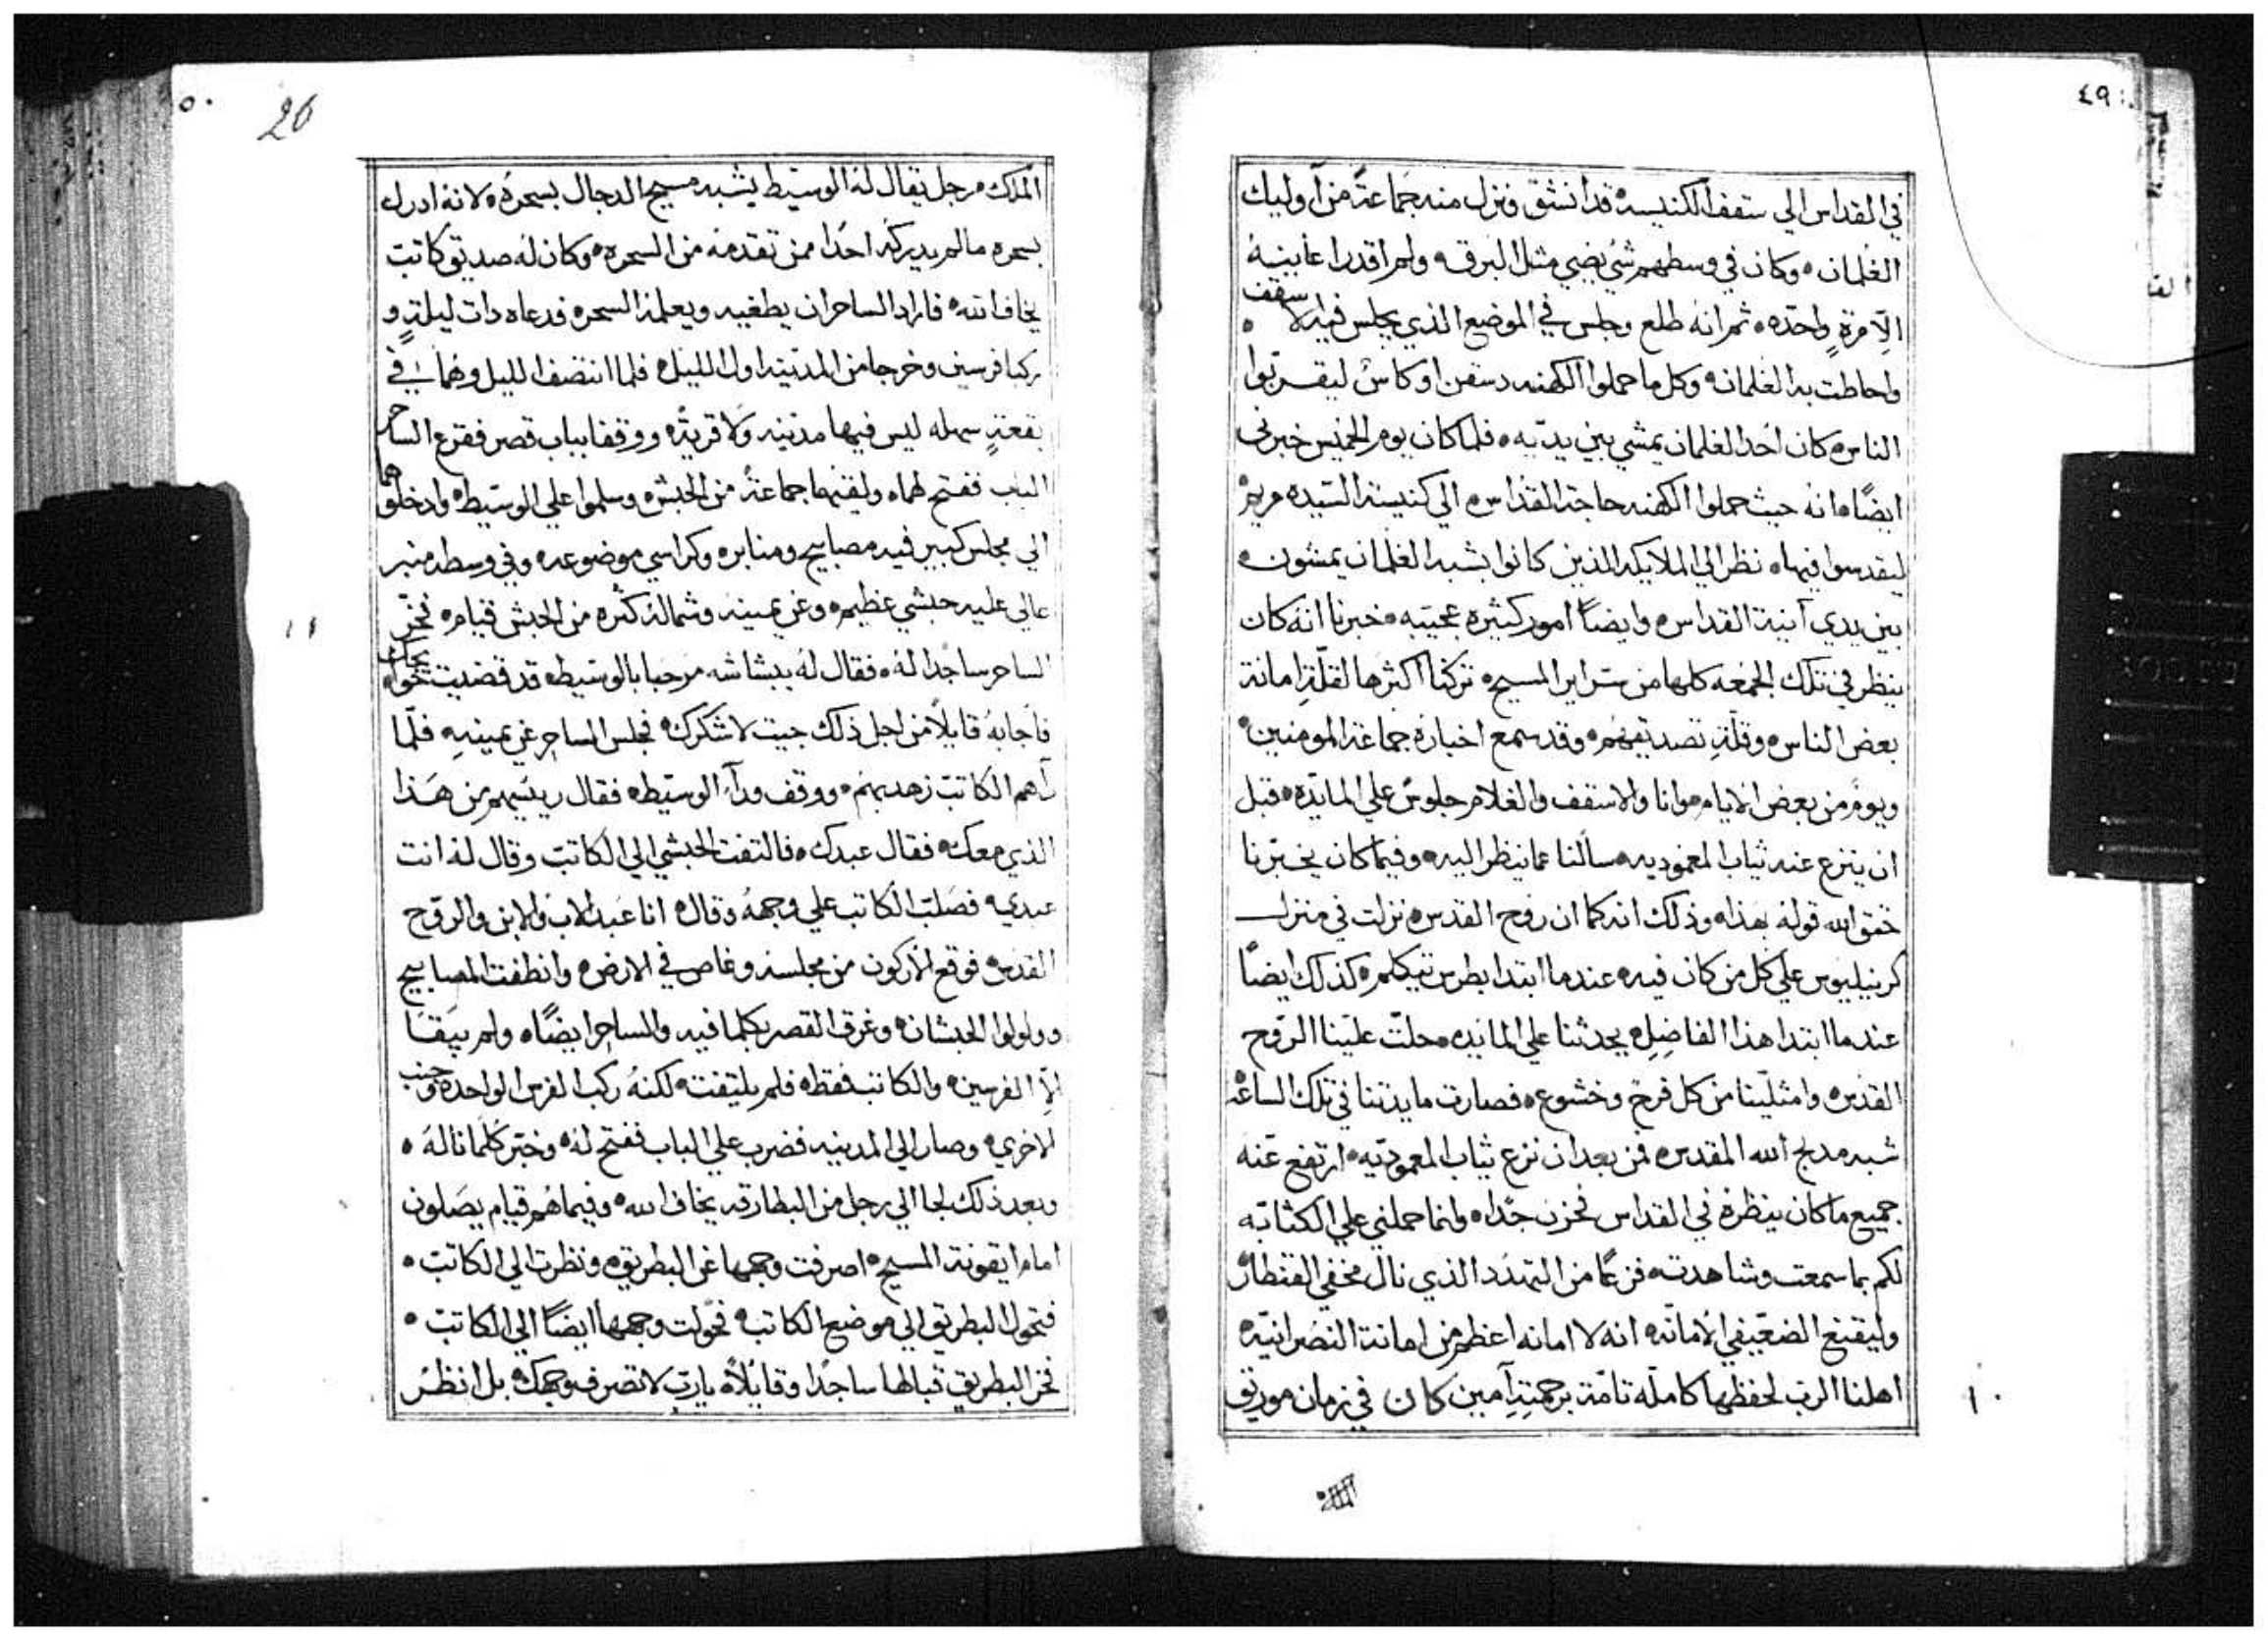 ٤٩
في القداس الي سقف الكنيسه قد انشق ونزل منه جماعةً من اوليك
الغلمان وكان في وسطهم شي يضي مثل البرق ولم اقدر اعاينهُ
الّا مرةٍ واحده ثم انه طلع وجلس في الموضع الذي يجلس فيه الاسقف
واحاطت به الغلمان وكل ما حملوا الكهنه دسقس او كاس ليقربوا
الناس كان احد الغلمان يمشي بين يديه فلما كان يوم الخميس خبرني
ايضًا انه حيث حملوا الكهنه حاجة القداس الي كنيسة السيده مريم
ليقدسوا فيها نظر الي الملايكه الذين كانوا بشبه الغلمان يمشون
بين يدي آنية القداس وايضًا امور كثيره عجيبه خبرنا انه كان
ينظر في تلك الجمعه كلها من سراير المسيح تركنا اكثرها لقلّةِ امانة
بعض الناس وقلّةِ تصديقهم وقد سمع اخباره جماعة المومنين
ويومً من بعض الايام وانا والاسقف والغلام جلوس علي المايده قبل
ان ينزع عنه ثياب المعموديه سالنا عما ينظر اليه وفيما كان يخبّرنا
حقق الله قوله بهذا وذلك انه كما ان روح القدس نزلت في منزل
كرنيليوس علي كل من كان فيه عندما ابتدا بطرس يتكلم كذلك ايضًا
عندما ابتدا هذا الفاضِل يحدثنا علي المايده حلّت علينا الروح
القدس وامتلينا من كل فرح وخشوع فصارت مايدتنا في تلك الساعه
شبه مدبح الله المقدس فمن بعد ان نزع ثياب المعموديه ارتفع عنه
جميع ما كان ينظره في القداس فحزن جدًا وانما حملني علي الكتابه
لكم بما سمعت وشاهدته فزعًا من التهدد الذي نال مخفي القنطار
وليقنع الضعيفي الامانه انه لا امانه اعظم من امانة النصرانيه
اهلنا الرب لحفظها كامله تامّة برحمتهِ آمين كان في زمان موريق
١٠
٥٠
26
الملك رجل يقال له الوسيط يشبه مسيح الدجال بسحره لانه ادرك
بسحره ما لم يدركه احدًا ممن تقدمه من السحره وكان له صديق كاتب
يخاف الله فاراد الساحر ان يطغيه ويعلمه السحر فدعاه دات ليلةٍ و
ركبا فرسين وخرجا من المدينه اول الليل فلما انتصف الليل وهما في
بقعةٍ سهله ليس فيها مدينه ولا قريه ووقفا بباب قصر فقرع الساحر
الباب ففتح لهما ولقيهما جماعةً من الحبش وسلموا علي الوسيط وادخلوهما
الي مجلس كبير فيه مصابيح ومنابر وكراسي موضوعه وفي وسطه منبر
عالي عليه حبشي عظيم وعن يمينه وشماله كثره من الحبش قيام فخرّ
الساحر ساجدًا له فقال له ببشاشه مرحبا بالوسيط قد قضيت حوايجك
فاجابهُ قايلًا من اجل ذلك جيت لاشكرك فجلس الساحر عن يمينهِ فلمّا
رآهم الكاتب زهد بهم ووقف ورآ الوسيط فقال رييسهم من هذا
الذي معك فقال عبدك فالتفت الحبشي الي الكاتب وقال له انت
عبدي فصلّب الكاتب علي وجههُ وقال انا عبد الاب والابن والروح
القدس فوقع الاركون من مجلسه وغاص في الارض وانطفت المصابيح
وولولوا الحبشان وغرق القصر بكلما فيه والساحر ايضًا ولم يبقا
الّا الفرسين والكاتب فقط فلم يلتفت لكنهُ ركب الفرس الواحده وجنب
الاخري وصار الي المدينه فضرب علي الباب ففتح له وخبّر كلما نالهُ
وبعد ذلك لجا الي رجل من البطارقه يخاف الله وفيما هم قيام يصلون
امام ايقونة المسيح اصرفت وجهها عن البطريق ونظرت الي الكاتب
فتحول البطريق الي موضع الكاتب فحولت وجهها ايضًا الي الكاتب
فخر البطريق قبالها ساجدًا وقايلًا يا رب لا تصرف وجهك بل انظر